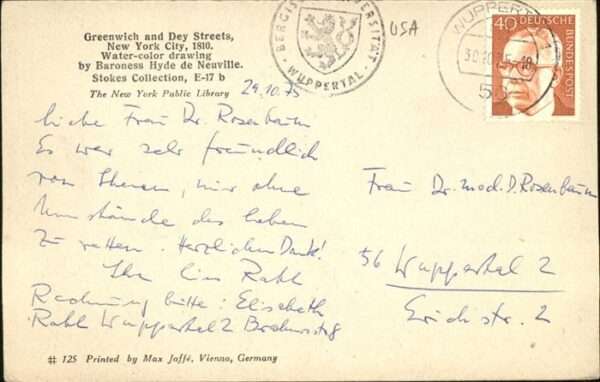 Greenwich and Dey Streets,
New York City, 1810.
Water-color drawing
by Baroness Hyde de Neuville.
Stokes Collection, E-17 b
The New York Public Library
29.10.75
Liebe Frau Dr. Rosenbaum
Es war sehr freundlich
von Ihnen, mir ohne
Umstände das Leben
zu retten. Herzlichen Dank!
Ihre Rahl
Rechnung bitte: Elisabeth
Rahl Wuppertal 2
# 125 Printed by Max Jaffé, Vienna, Germany
BERGISCHE UNIVERSITÄT
WUPPERTAL
USA
WUPPERTAL
30.10.75-18
56
40 DEUTSCHE
BUNDESPOST
Frau Dr. med. D. Rosenbaum
56 Wuppertal 2
Erichstr. 2